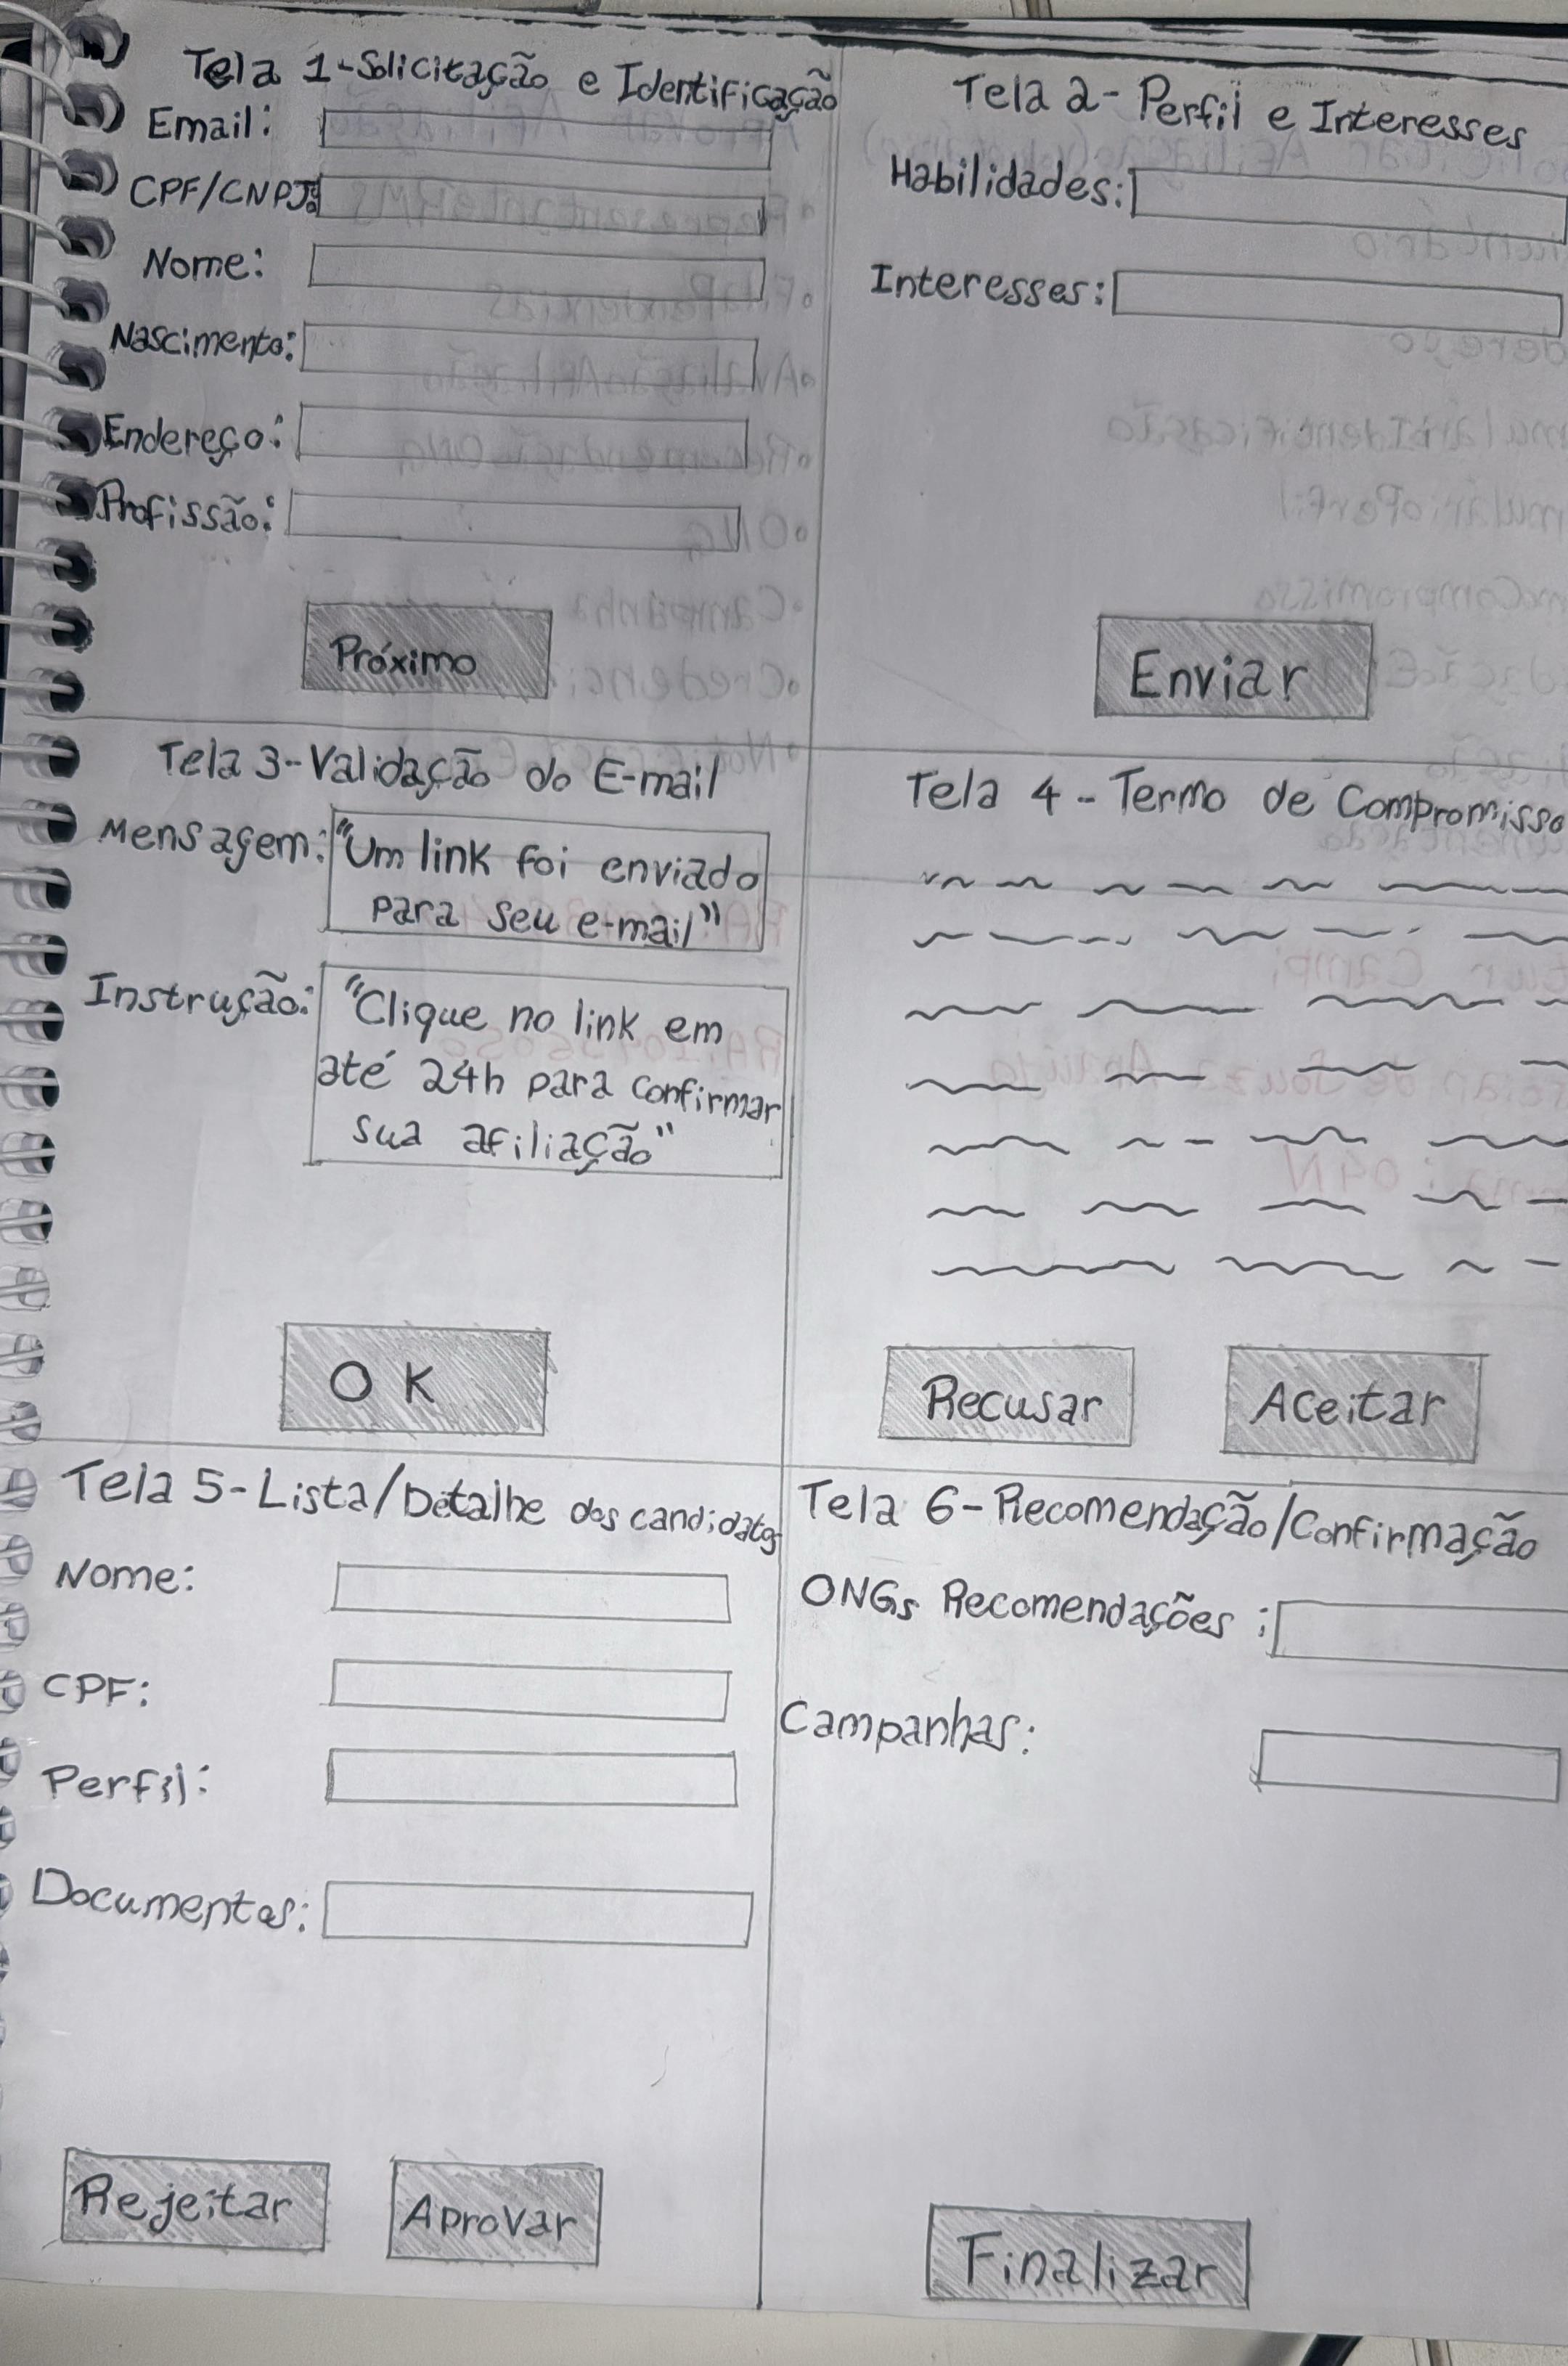 Tela 1-Solicitação e Identificação
Email:
CPF/CNPJ:
Nome:
Nascimento:
Endereço:
Profissão:
Próximo
Tela 2- Perfil e Interesses
Habilidades:
Interesses:
Enviar
Tela 3-Validação do E-mail
Mensagem: "Um link foi enviado
para seu e-mail"
Instrução: "Clique no link em
até 24h para confirmar
sua afiliação"
OK
Tela 4 - Termo de Compromisso
Recusar Aceitar
Tela 5-Lista/Detalhe dos candidatos
Nome:
CPF:
Perfil:
Documentos:
Rejeitar Aprovar
Tela 6-Recomendação/Confirmação
ONGs Recomendações:
Campanhas:
Finalizar